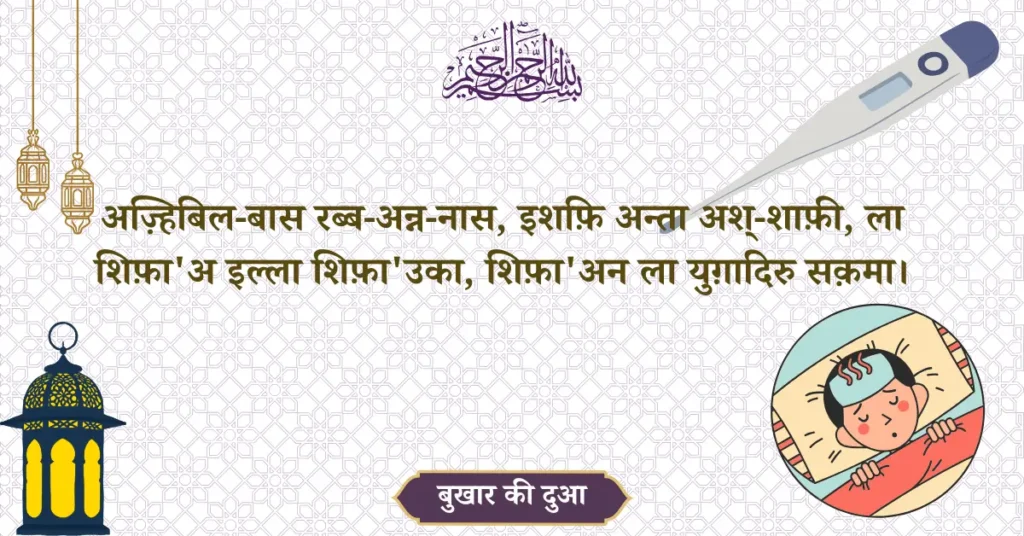 بسم الله الرحمن الرحيم
अज़्हिबिल-बास रब्ब-अन्न-नास, इशफ़ि अन्ता अश्-शाफ़ी, ला
शिफ़ा'अ इल्ला शिफ़ा'उका, शिफ़ा'अन ला युग़ादिरु सक़मा।
बुखार की दुआ